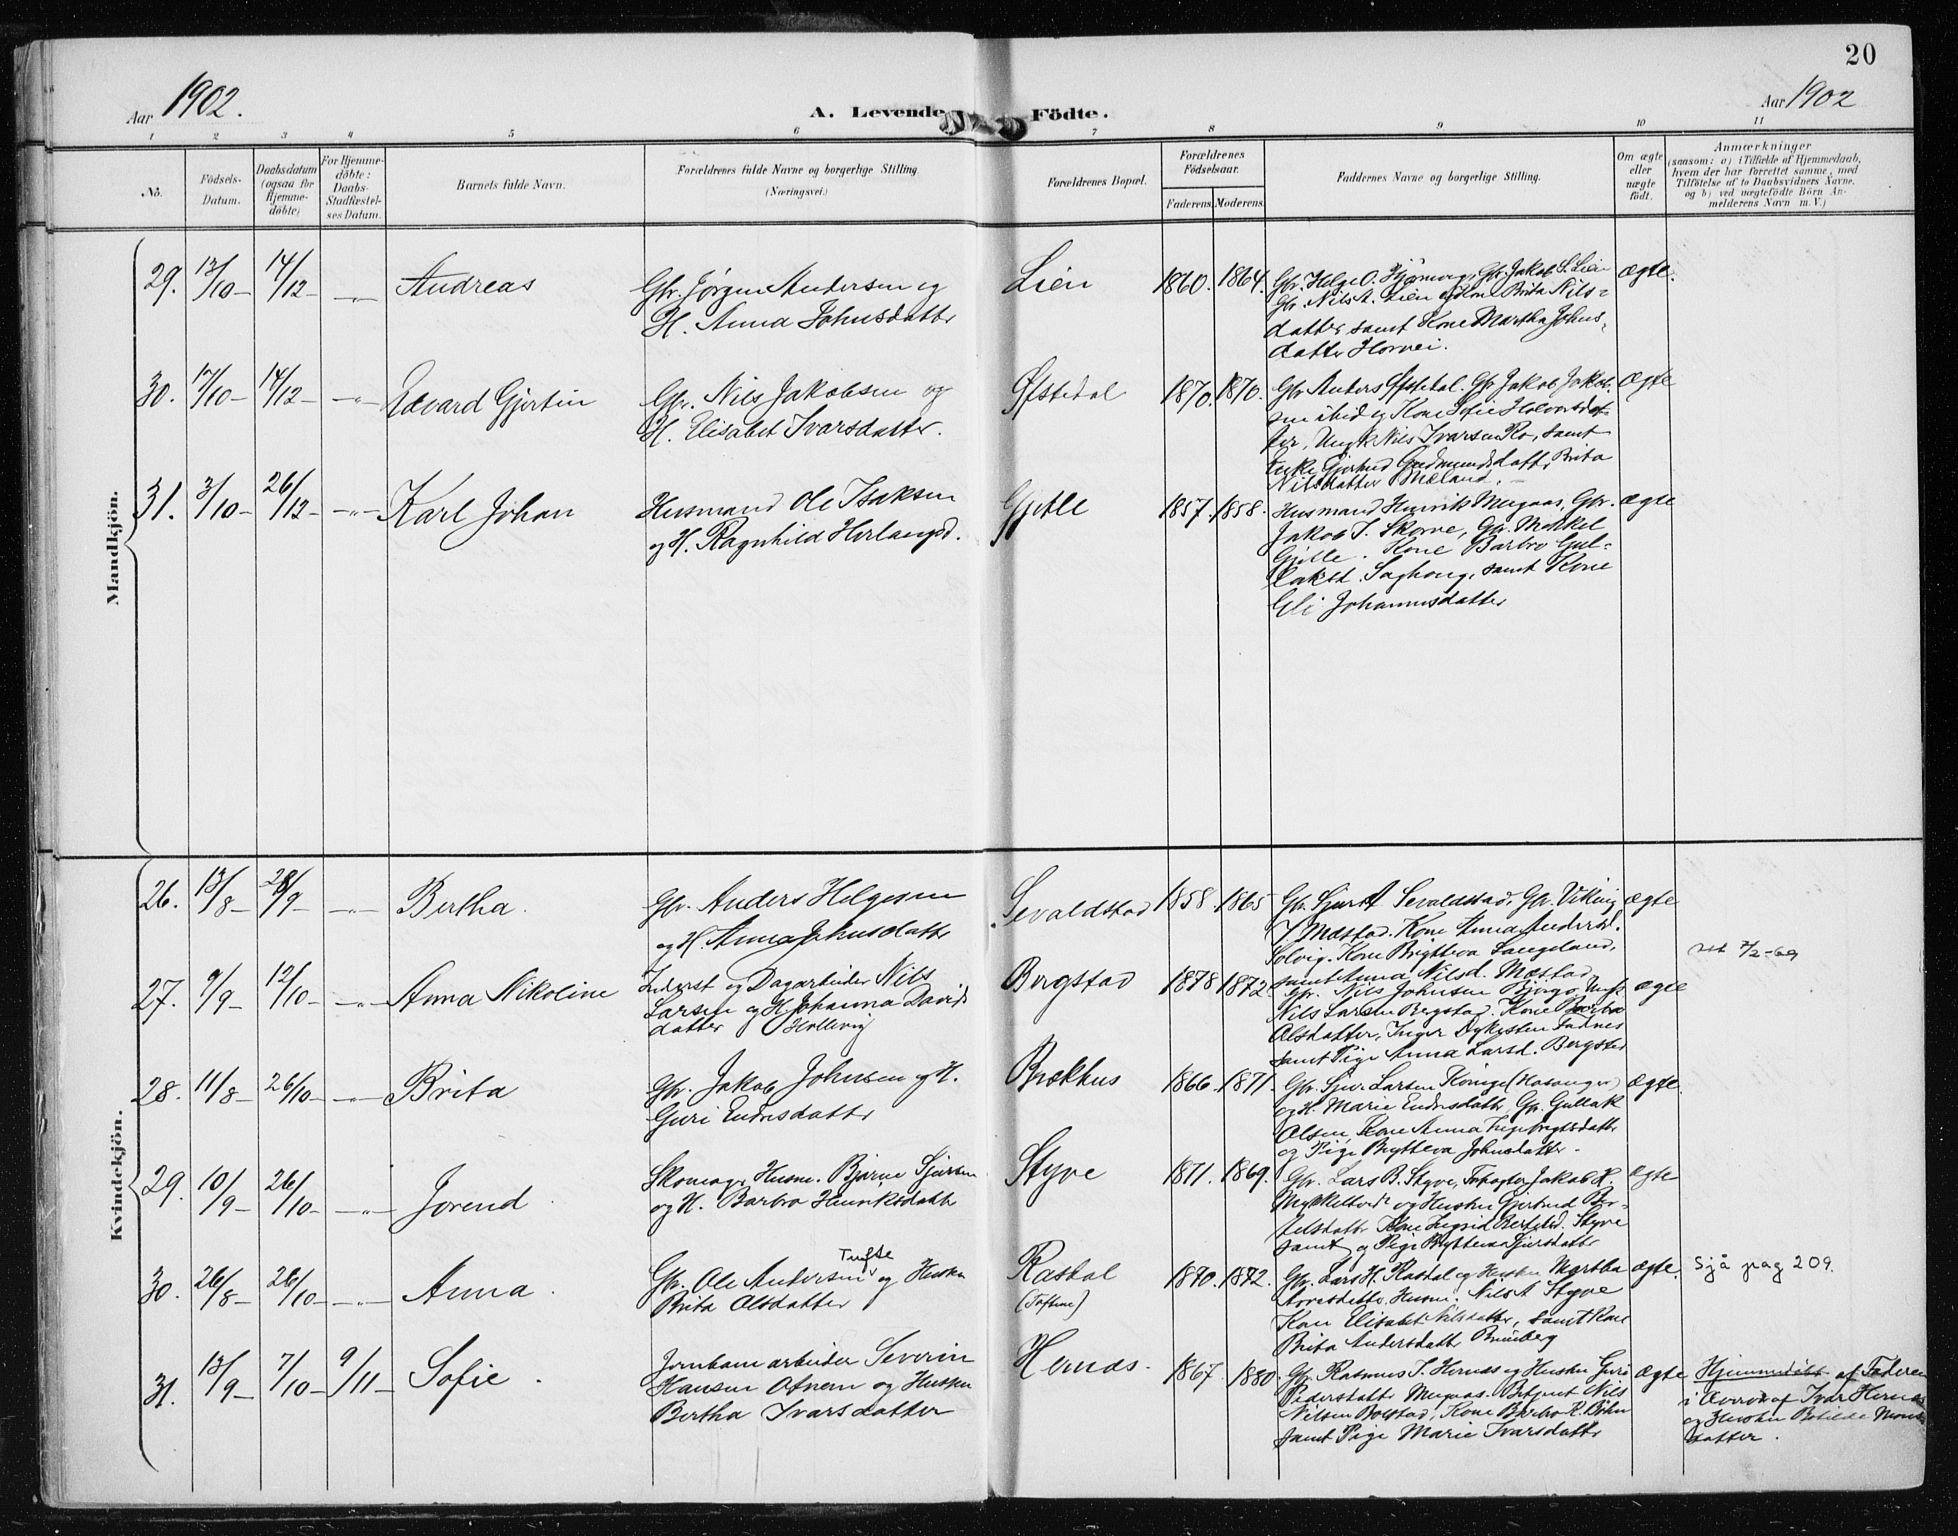 20
Aar 1902.
A. Levende Födte.
Aar 1902
1 2 3 4 5 6 7 8 9 10 11
No.
Födsels-
Datum.
Daabsdatum
(ogsaa for
Hjemme-
döbte)
For Hjemme-
döbte:
Daabs-
Stadfæstel-
ses Datum.
Barnets fulde Navn.
Forældrenes fulde Navne og borgerlige Stilling
(Næringsvei.)
Forældrenes Bopæl.
Forældrenes
Födselsaar.
Faderens. Moderens.
Faddernes Navne og borgerlige Stilling.
Om ægte
eller
uægte
födt.
Anmærkninger
(saasom: a) i Tilfælde af Hjemmedaab,
hvem der har forrettet samme, med
Tilföielse af to Daabsvidners Navne,
og b) ved uægtefödte Börn An-
melderens Navn m. V.)
Mandkjön.
29. 13/10 14/12 -"- Andreas
Gbr. Jørgen Andersen og
H. Anna Johnsdatter
Lien 1860. 1864.
Gbr. Helge O. Gbr. Jakob S. Lien
Gbr. Nils A. Lien Kone Brita Nils=
datter, samt Kone Martha Johns-
datter Horvei.
ægte.
30. 17/10 14/12 -"- Edvard Gjertin
Gbr. Nils Jakobsen og
H. Elisabet Ivarsdatter.
Øfstedal 1870. 1870.
Gbr Anders Øfstedal. Gbr Jakob Jakob
sen ibid og Kone Sofie
ter, Ungk Nils Ivarsen Ro, samt
Enke Gjertrud Gudmundsdatter Brita
Nilsdatter
ægte
31. 3/10 26/12 -"- Karl Johan
Husmand Ole Isaksen
og H. Ragnhild
Gjelle 1857. 1858.
Husmand Henrik Mugaas, Gbr.
Jakob J. Skorve, Gbr. Markel
Gjelle. Kone Barbro Gul=
laksd. Saghaug, samt Kone
Eli Johannesdatter
ægte
Kvindekjön.
26. 13/8 28/9 -"- Bertha.
Gbr. Anders Helgesen
og H. Anna Johnsdatter
Sevaldstad 1858. 1865
Gbr. Sjur A Sevaldstad, Gbr. Viking
J Mæstad. Kone Anna Andersd.
Solvig. Kone Brytteva Langeland,
samt Anna Nilsd. Mæstad
ægte
27. 9/9 12/10 -"- Anna Nikoline
Inderst og Dagarbeider Nils
Larsen og H Johanna Davids
datter
Bergstad 1878 1872
Gbr. Nils Johnsen Bjørgo, Ungk.
Nils Larsen Bergstad. Kone Barbra
Olsdatter, Inger Dykesten Fadnes
samt Pige Anna Larsd. Bergstad
ægte
7/2-69
28. 11/8 26/10 -"- Brita
Gbr. Jakob Johnsen og H.
Guri Endresdatter
Brækhus 1866. 1871.
Gbr. Sjur Larsen
og H. Marie Endresdatter, Gbr. Gullak
Olsen, Kone Anna Ingebrigtsdatter
og Pige Brytteva Johnsdatter.
ægte
29. 10/9 26/10 -"- Jorend
Skomager, Husm. Bjarne Sjursen
og H. Barbro Henriksdatter
Styve 1871. 1869.
Gbr. Lars B. Styve, Jakob K.
og Hustru Gjertrud Ber-
telsdatter Kone Ingrid Bertelsd. Styve
samt og Pige Brytteva Sjursdatter
ægte
30. 26/8 26/10 -"- Anna.
Tufte
Gbr. Ole Andersen og Hustru
Brita Olsdatter
Rastal
1870. 1872.
Gbr. Lars H. Rastal og Hustru Martha
Husm. Nils A Styve
Kone Elisabet Nilsdatter, samt Kone
Brita Andersdatter
ægte.
Sjå pag 209.
31. 13/9 7/10 9/11 Sofie.
Jernbanearbeider Severin
Hansen og Hustru
Bertha Ivarsdatter
Hernæs. 1867. 1880.
Gbr. Rasmus J. Hernæs og Hustru Guro
Pedersdatter Mugaas. Betjent Nils
Nilsen Bolstad, Kone Barbro R. Bøhn
samt Pige Marie Ivarsdatter
ægte
Hjemmedøbt af Faderen
i Overvær af Ivar Hernæs
og Hustru Botilde Mons
datter.